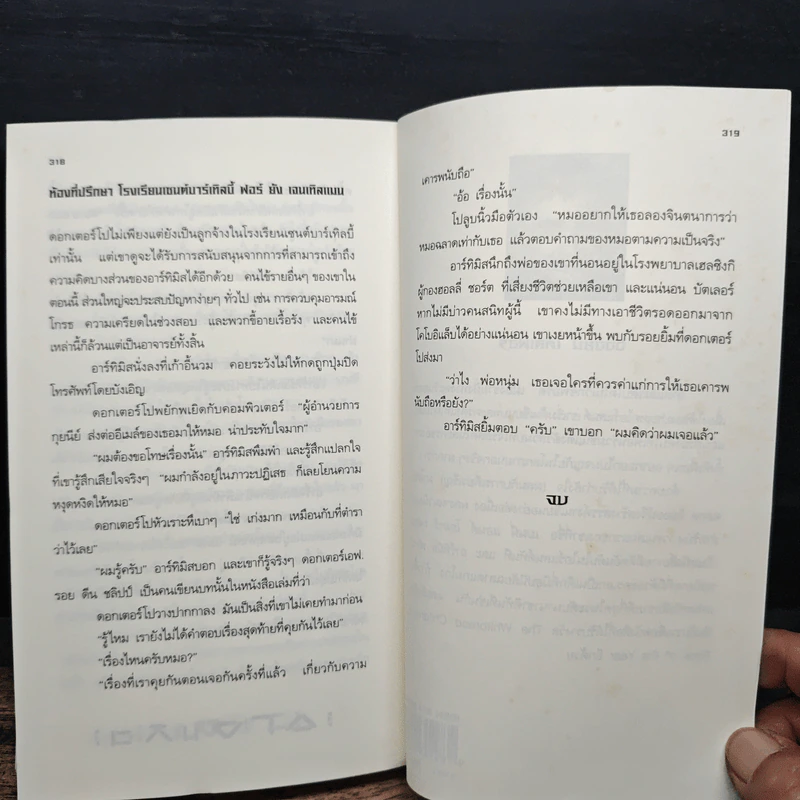 318
ห้องที่ปรึกษา โรงเรียนเซนท์บาร์เทิลบี้ ฟอร์ ยัง เจนเทิลแมน
ดอกเตอร์โปไม่เพียงแต่ยังเป็นลูกจ้างในโรงเรียนเซนต์บาร์เทิลบี้
เท่านั้น แต่เขาดูจะได้รับการสนับสนุนจากการที่สามารถเข้าถึง
ความคิดบางส่วนของอาร์ทิมิสได้อีกด้วย คนไข้รายอื่นๆ ของเขาใน
ตอนนี้ ส่วนใหญ่จะประสบปัญหาง่ายๆ ทั่วไป เช่น การควบคุมอารมณ์
โกรธ ความเครียดในช่วงสอบ และพวกขี้อายเรื้อรัง และคนไข้
เหล่านี้ก็ล้วนแต่เป็นอาจารย์ทั้งสิ้น
อาร์ทิมิสนั่งลงที่เก้าอี้นวม คอยระวังไม่ให้กดถูกปุ่มปิด
โทรศัพท์โดยบังเอิญ
ดอกเตอร์โปพยักพเยิดกับคอมพิวเตอร์ “ผู้อำนวยการ
กุยนีย์ ส่งต่ออีเมล์ของเธอมาให้หมอ น่าประทับใจมาก”
“ผมต้องขอโทษเรื่องนั้น” อาร์ทิมิสพึมพำ และรู้สึกแปลกใจ
ที่เขารู้สึกเสียใจจริงๆ “ผมกำลังอยู่ในภาวะปฏิเสธ ก็เลยโยนความ
หงุดหงิดให้หมอ”
ดอกเตอร์โปหัวเราะหึเบาๆ “ใช่ เก่งมาก เหมือนกับที่ตำรา
ว่าไว้เลย”
“ผมรู้ครับ” อาร์ทิมิสบอก และเขาก็รู้จริงๆ ดอกเตอร์เอฟ.
รอย ดีน ชลิปป์ เป็นคนเขียนบทนั้นในหนังสือเล่มที่ว่า
ดอกเตอร์โปวางปากกาลง มันเป็นสิ่งที่เขาไม่เคยทำมาก่อน
“รู้ไหม เรายังไม่ได้คำตอบเรื่องสุดท้ายที่คุยกันไว้เลย”
“เรื่องไหนครับหมอ?”
“เรื่องที่เราคุยกันตอนเจอกันครั้งที่แล้ว เกี่ยวกับความ
319
เคารพนับถือ”
“อ้อ เรื่องนั้น”
โปลูบนิ้วมือตัวเอง “หมออยากให้เธอลองจินตนาการว่า
หมอฉลาดเท่ากับเธอ แล้วตอบคำถามของหมอตามความเป็นจริง”
อาร์ทิมิสนึกถึงพ่อของเขาที่นอนอยู่ในโรงพยาบาลเฮลซิงกิ
ผู้กองฮอลลี่ ชอร์ต ที่เสี่ยงชีวิตช่วยเหลือเขา และแน่นอน บัตเลอร์
หากไม่มีบ่าวคนสนิทผู้นี้ เขาคงไม่มีทางเอาชีวิตรอดออกมาจาก
โคโบอิแล็บได้อย่างแน่นอน เขาเงยหน้าขึ้น พบกับรอยยิ้มที่ดอกเตอร์
โปส่งมา
“ว่าไง พ่อหนุ่ม เธอเจอใครที่ควรค่าแก่การให้เธอเคารพ
นับถือหรือยัง?”
อาร์ทิมิสยิ้มตอบ “ครับ” เขาบอก “ผมคิดว่าผมเจอแล้ว”
จบ